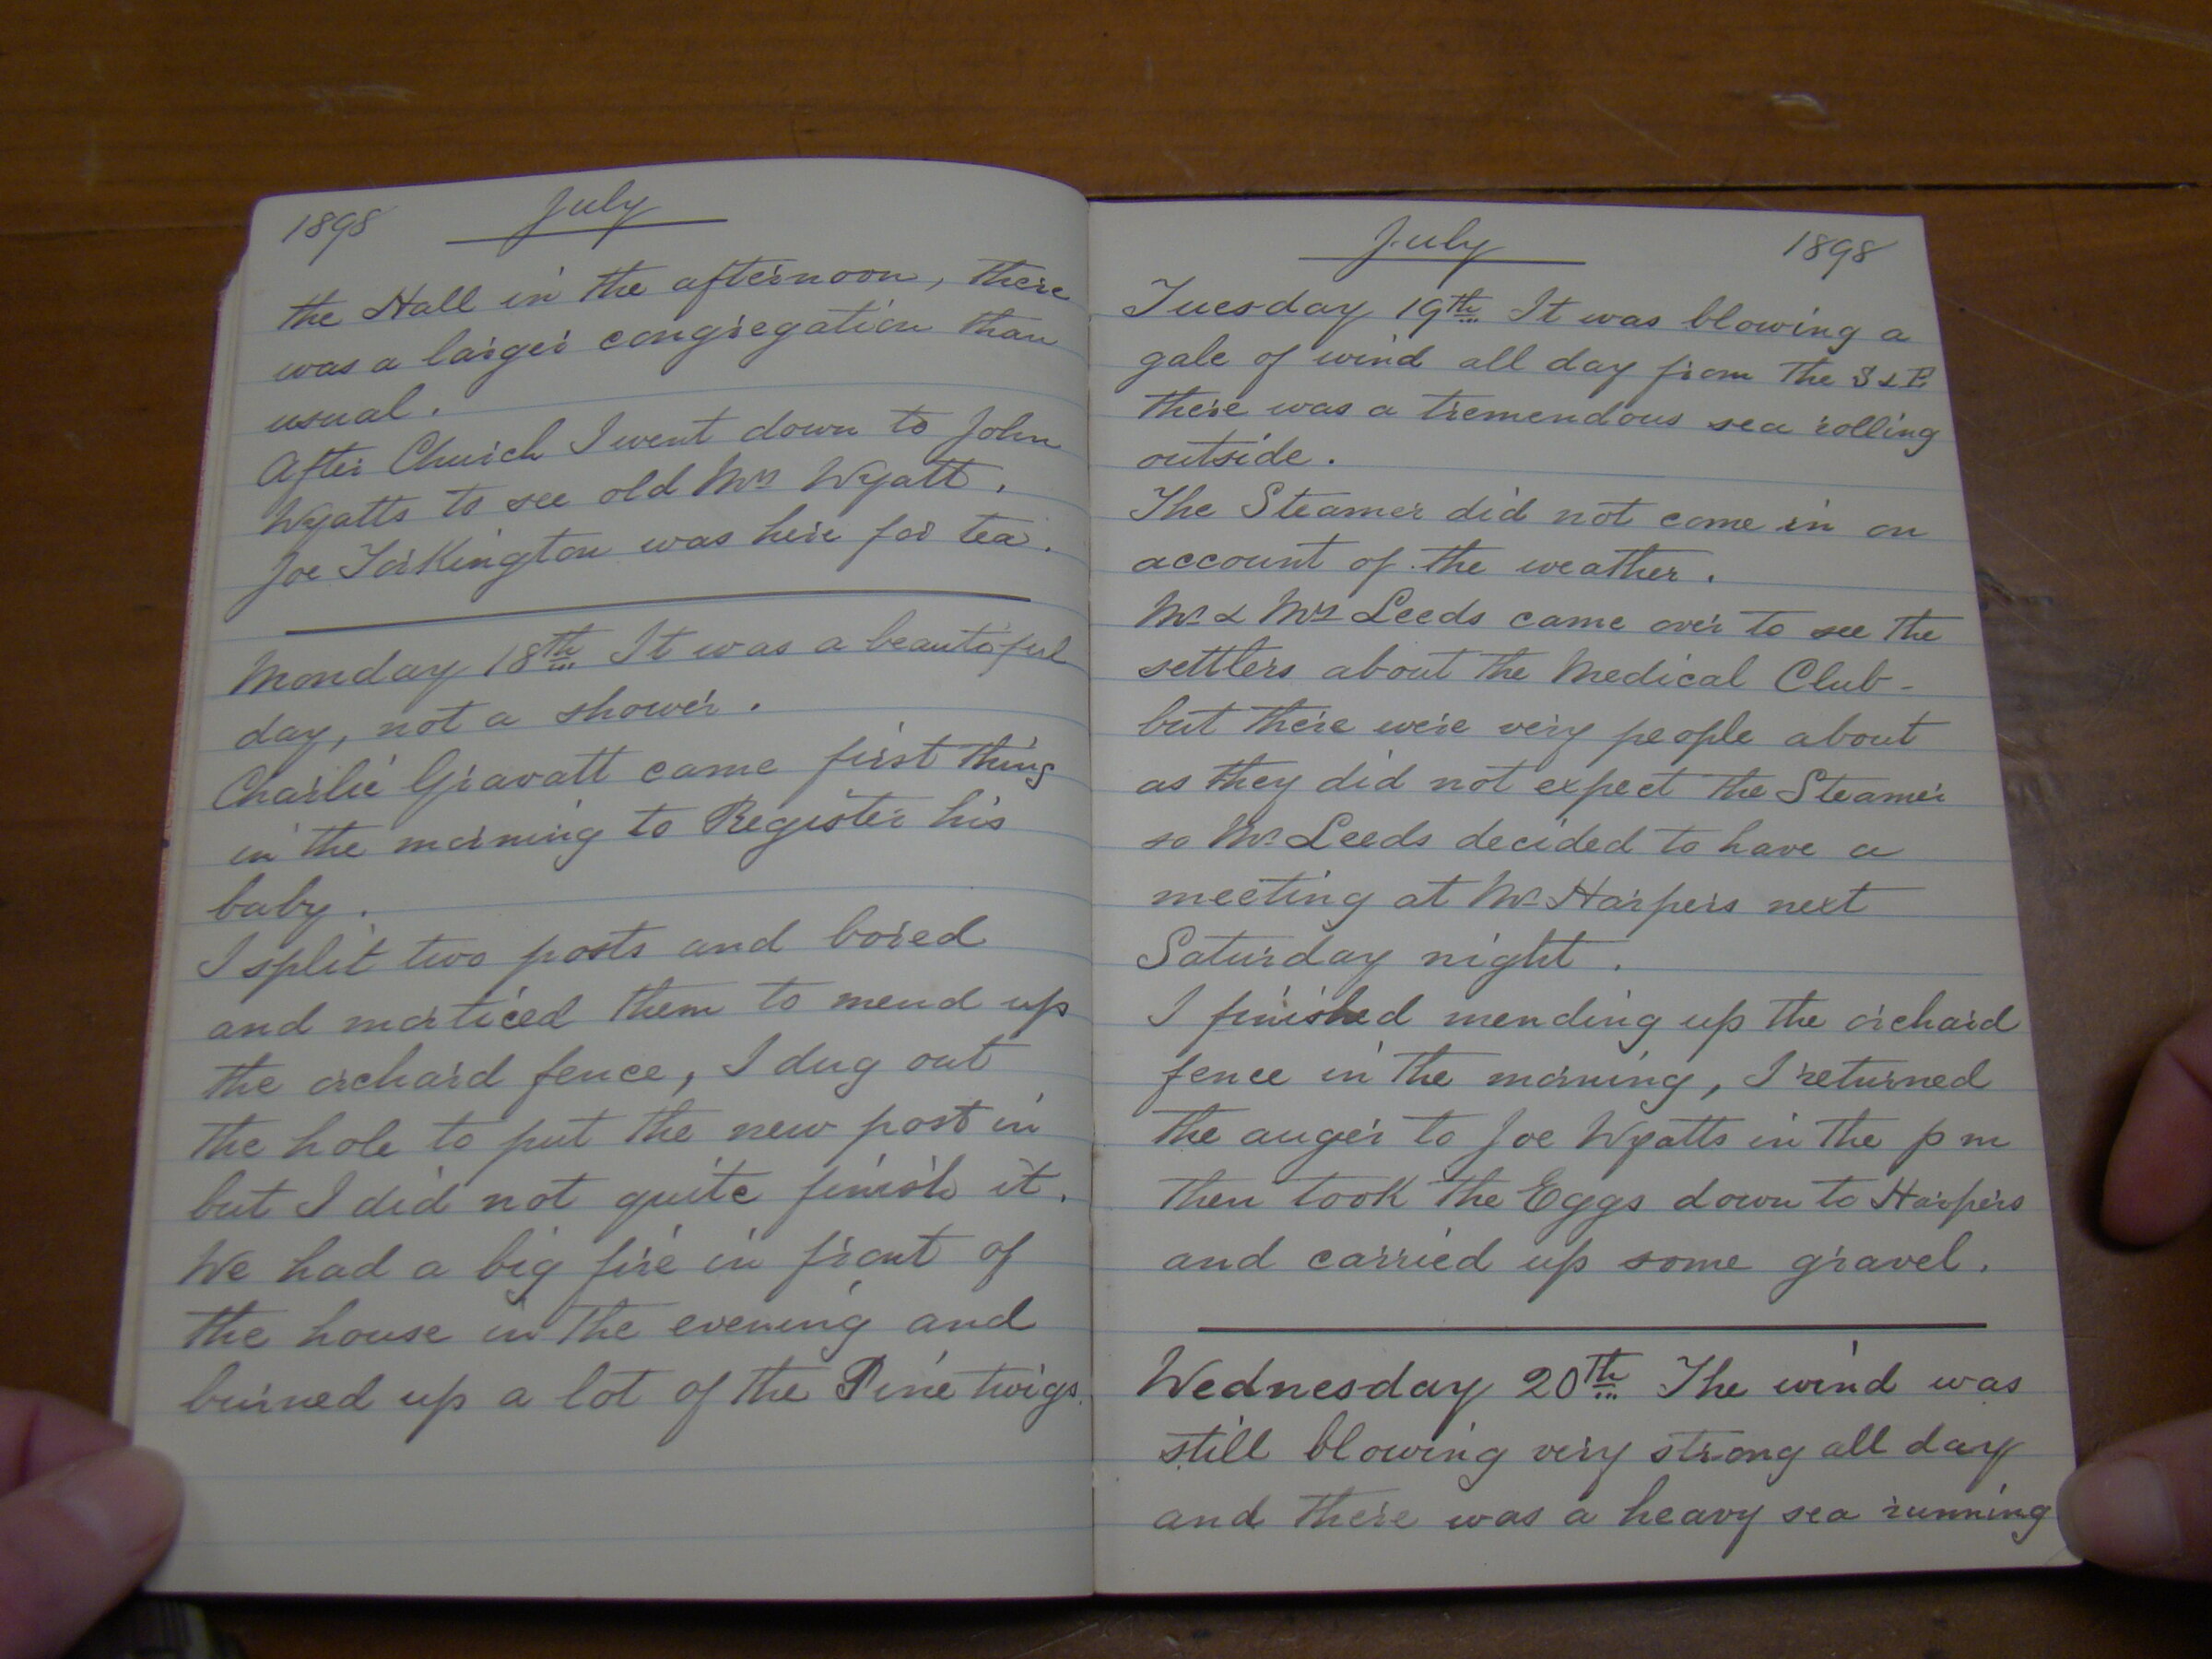 1898 July
the Hall in the afternoon, there
was a larger congregation than
usual.
After Church I went down to John
Wyatts to see old Mrs Wyatt.
Joe Torkington was here for tea.
Monday 18th It was a beautiful
day, not a shower.
Charlie Gravatt came first thing
in the morning to Register his
baby.
I split two posts and bored
and morticed them to mend up
the orchard fence, I dug out
the hole to put the new post in
but I did not quite finish it.
We had a big fire in front of
the house in the evening and
burned up a lot of the Pine twigs.
July 1898
Tuesday 19th It was blowing a
gale of wind all day from the S & E
there was a tremendous sea rolling
outside.
The Steamer did not come in on
account of the weather.
Mr & Mrs Leeds came over to see the
settlers about the Medical Club -
but there were very people about
as they did not expect the Steamer
so Mr Leeds decided to have a
meeting at Mr Harpers next
Saturday night.
I finished mending up the orchard
fence in the morning, I returned
the auger to Joe Wyatts in the pm
then took the Eggs down to Harpers
and carried up some gravel.
Wednesday 20th The wind was
still blowing very strong all day
and there was a heavy sea running